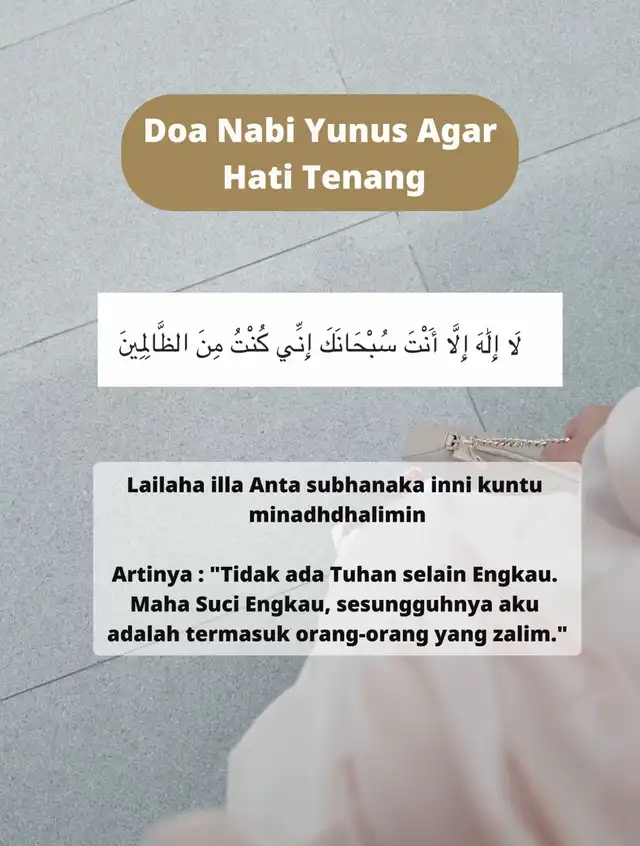 Doa Nabi Yunus Agar
Hati Tenang
لَا إِلٰهَ إِلَّا أَنْتَ سُبْحَانَكَ إِنِّي كُنْتُ مِنَ الظَّالِمِينَ
Lailaha illa Anta subhanaka inni kuntu
minadhdhalimin
Artinya : "Tidak ada Tuhan selain Engkau.
Maha Suci Engkau, sesungguhnya aku
adalah termasuk orang-orang yang zalim."